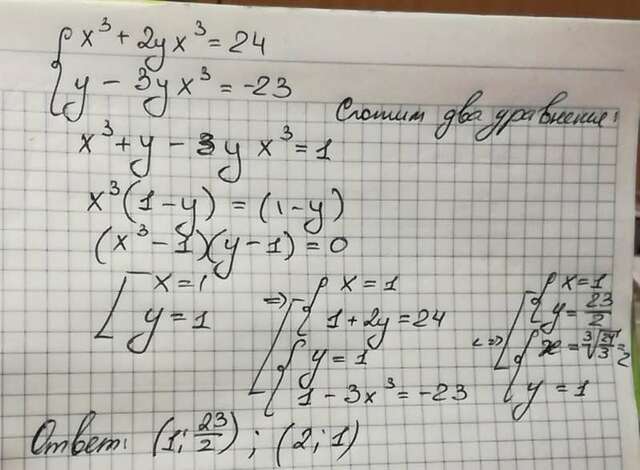 x³ + 2yx³ = 24
y - 3yx³ = -23
Сложим два уравнения:
x³ + y - 3yx³ = 1
x³(1-y) = (1-y)
(x³-1)(y-1) = 0
x = 1
y = 1
=> x = 1
1 + 2y = 24
y = 1
1 - 3x³ = -23
<=> x = 1
y = 23/2
x = ∛24/3 = 2
y = 1
Ответ: (1; 23/2); (2; 1)